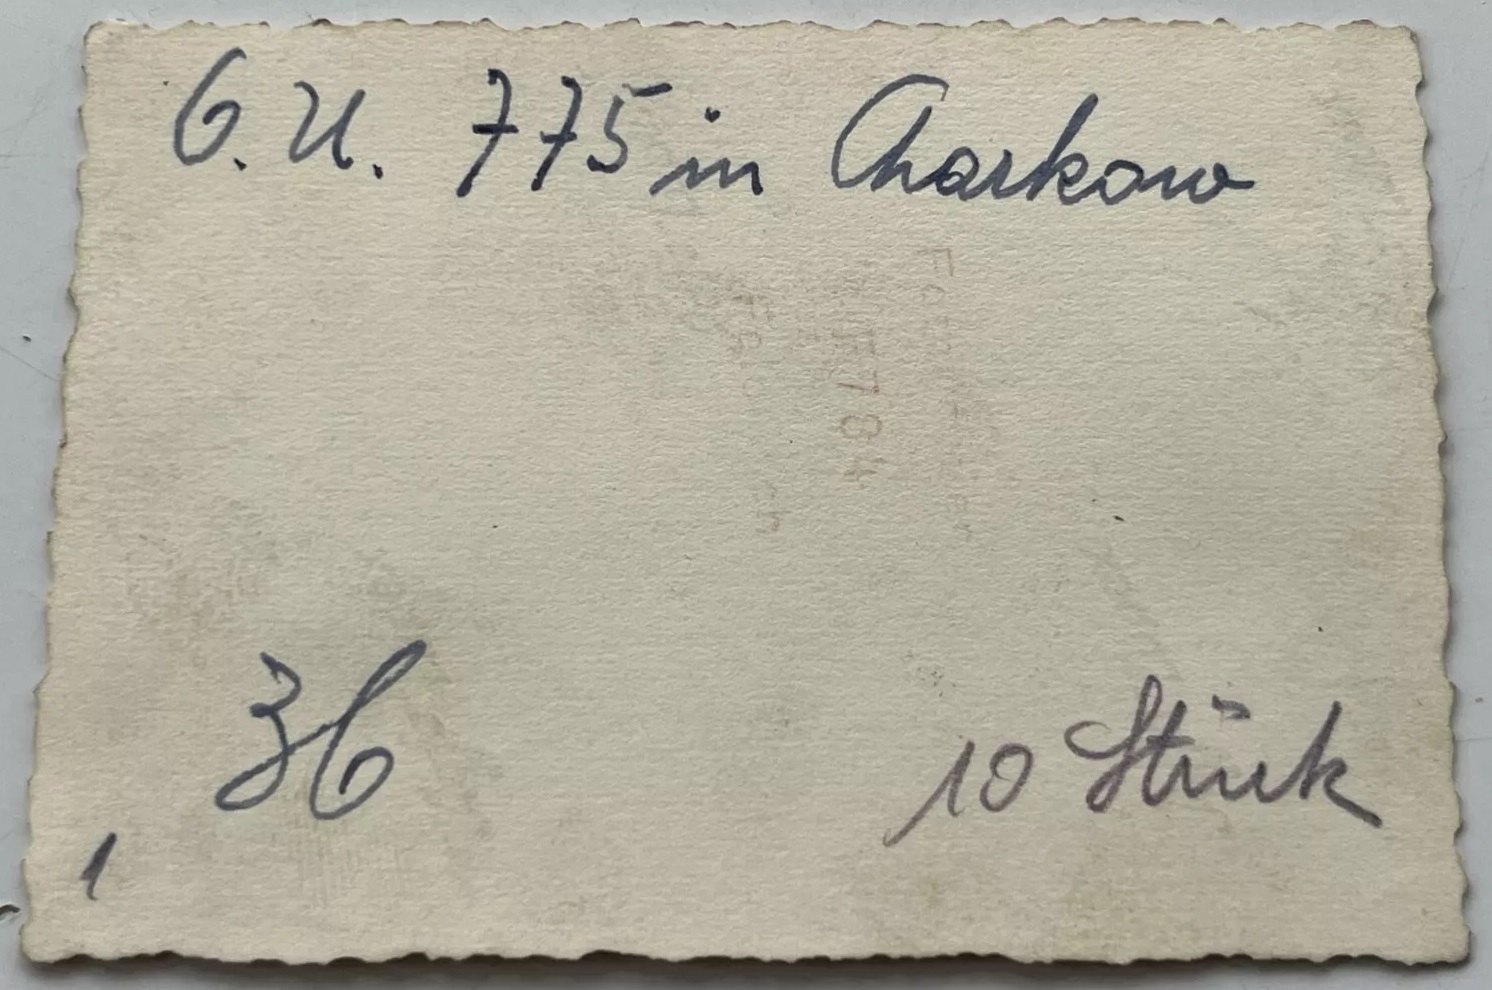 G.U. 775 in Charkow
784
36
10 Stück
1